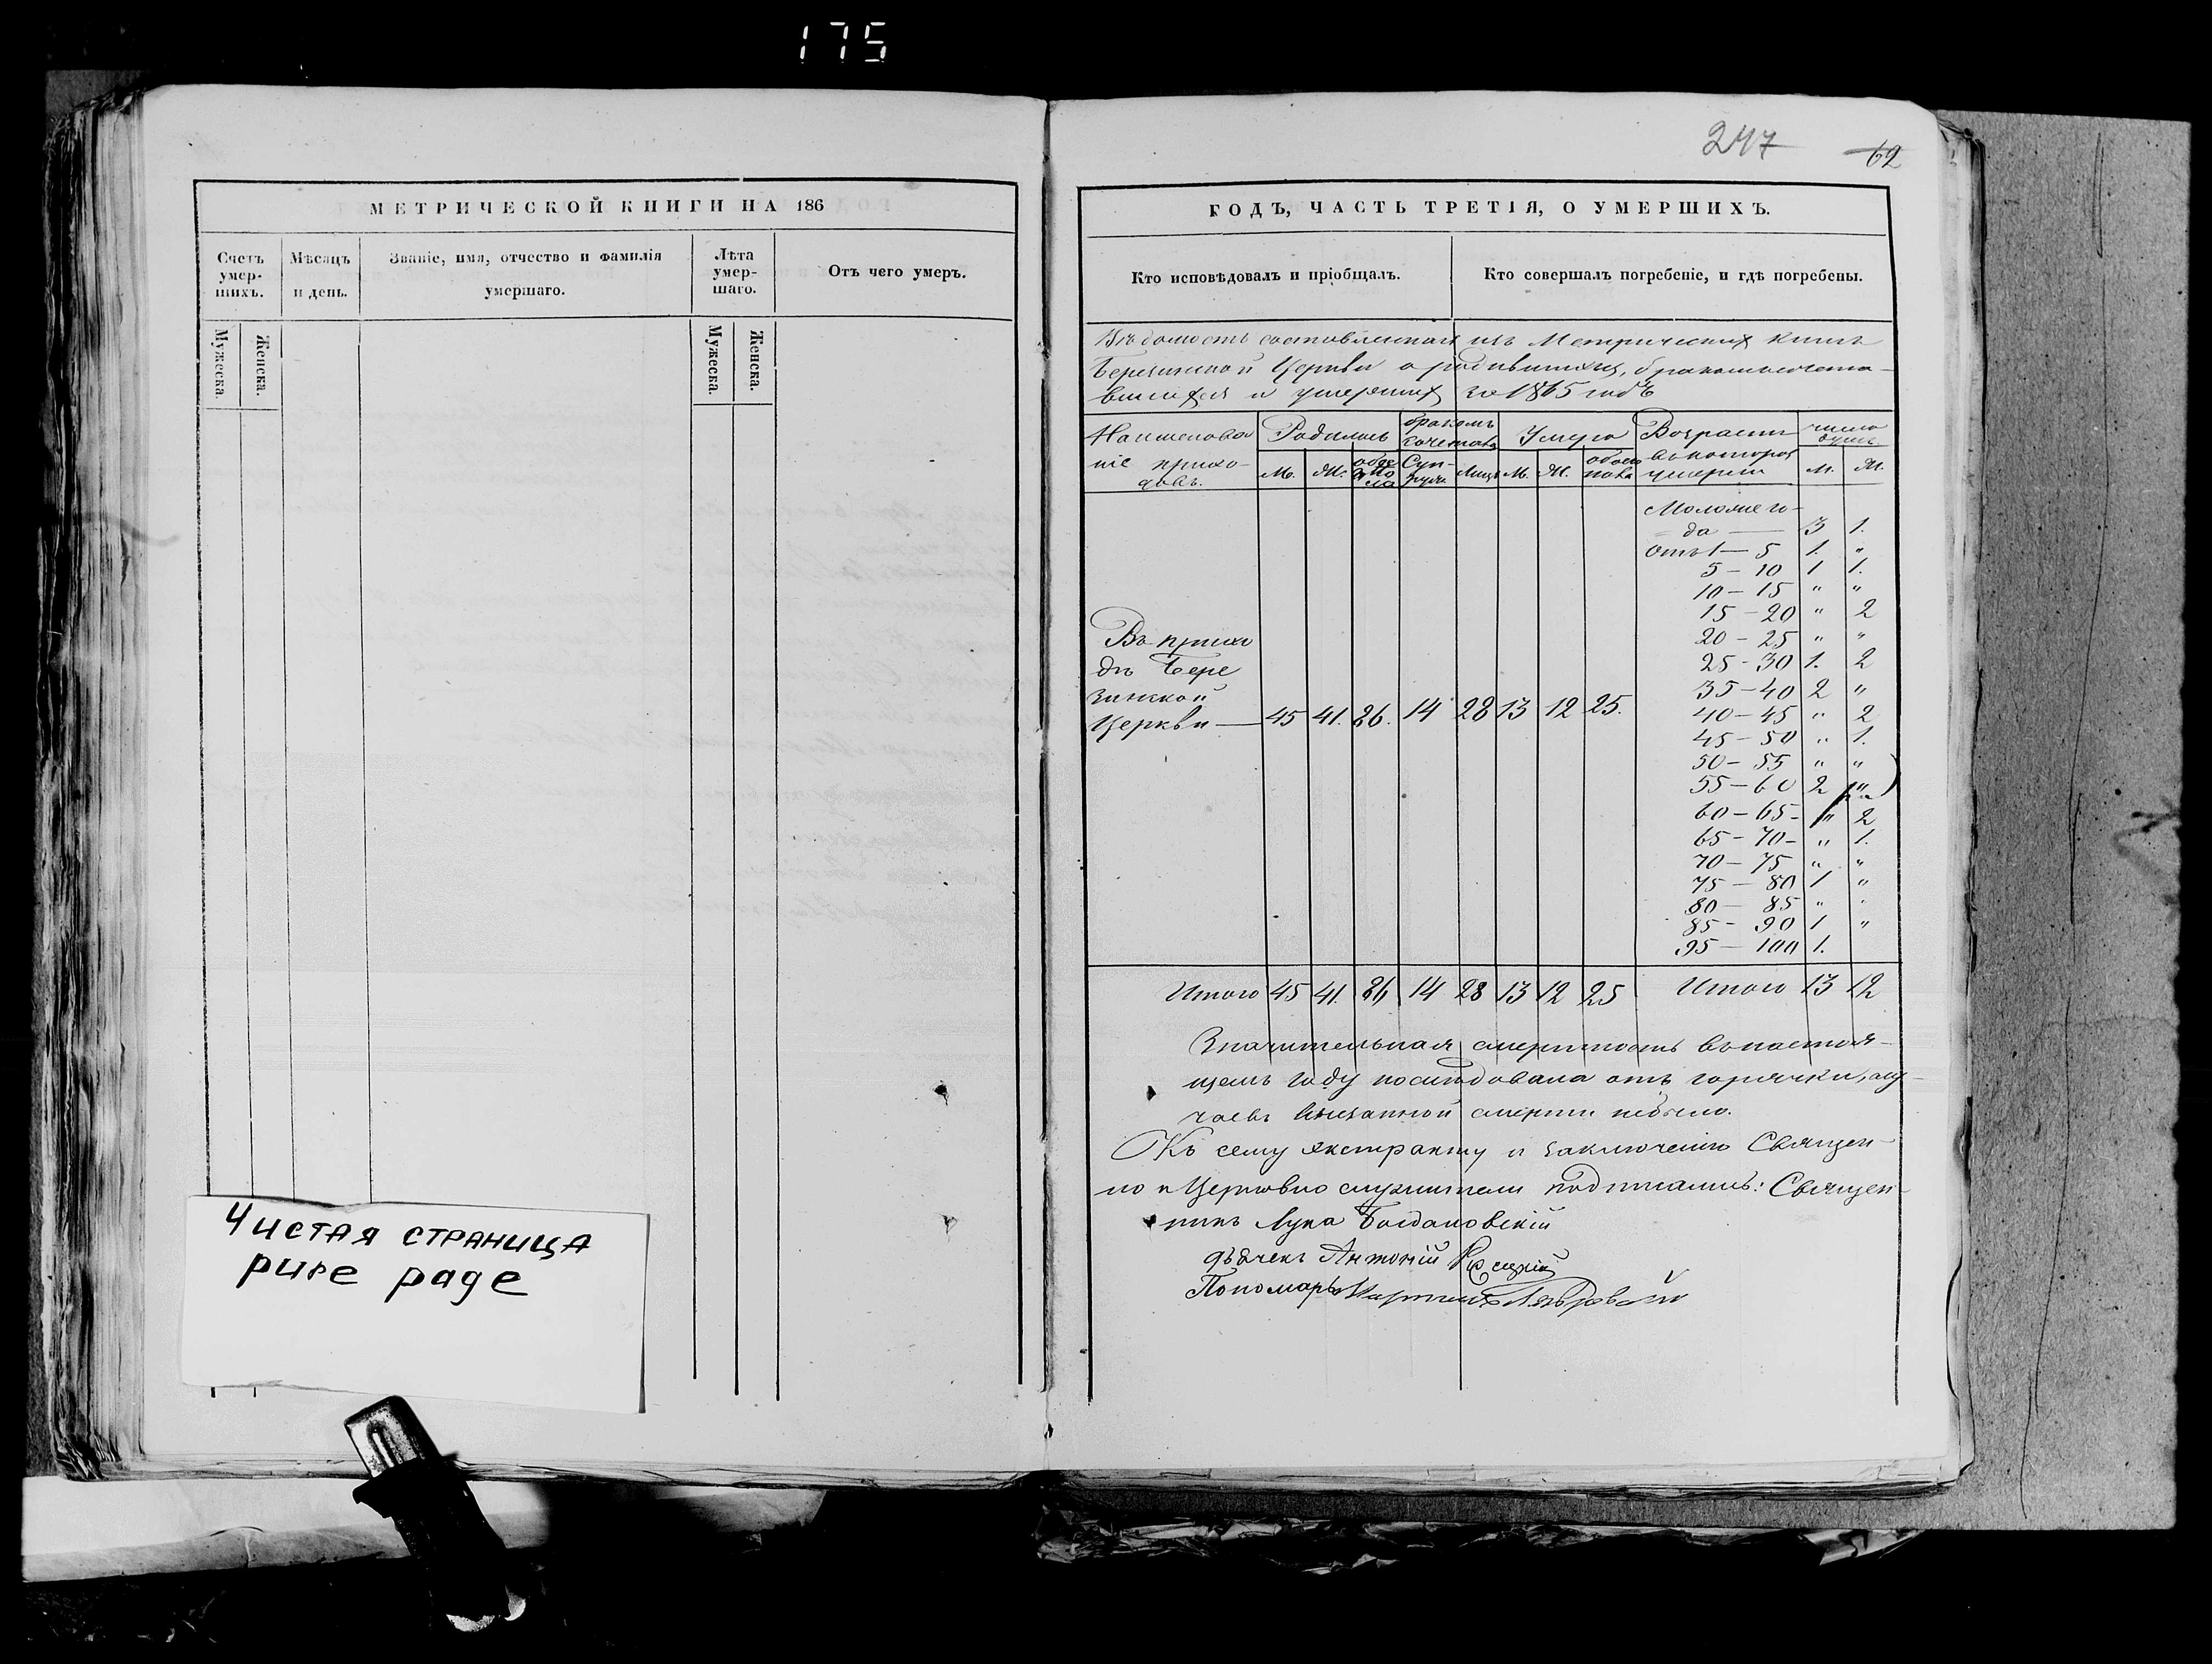 175
МЕТРИЧЕСКОЙ КНИГИ НА 186
Счетъ умер-шихъ.
Мѣсяцъ и день.
Званіе, имя, отчество и фамилія умершаго.
Лѣта умер-шаго.
Отъ чего умеръ.
Мужеска.
Женска.
Мужеска.
Женска.
Чистая страница
pure page
247
62
ГОДЪ, ЧАСТЬ ТРЕТІЯ, О УМЕРШИХЪ.
Кто исповѣдовалъ и пріобщалъ.
Кто совершалъ погребеніе, и гдѣ погребены.
Вѣдомость составленная изъ Метрическихъ книгъ
Церкви о родившихся, бракомъсочета-
вшихся и умершихъ за 1865 годъ
Наименова Родилось бракомъ сочетав Умерло Возрастъ число душъ
ніе прихо- М. Ж. обое Суп- Лицъ М. Ж. обоего въ которой М. Ж.
довъ. пола пола умерли
Моложе го-
да — 3 1.
отъ 1 — 5 1. "
5 — 10 1 1.
10 — 15 " "
15 — 20 " 2
20 — 25 " "
25 — 30 1. 2
35 — 40 2 "
40 — 45 " 2
45 — 50 " 1.
50 — 55 " "
55 — 60 2 "
60 — 65 - " 2
65 — 70 - " 1.
70 — 75 " "
75 — 80 1 "
80 — 85 " "
85 — 90 1 "
95 — 100 1.
Въ прихо
дѣ Бере
зинской
Церкви — 45 41. 86. 14 28 13 12 25.
Итого 45 41. 86 14 28 13 12 25 Итого 13 12
Значительная смертность въ настоя-
щемъ году последовала отъ горячки, слу-
чаевъ внезапной смерти небыло.
Къ сему экстракту и заключенію Священ-
но и Церковно служители подписались: Священ-
никъ Лука Богдановскій
дьячекъ Антоній
Пономарь